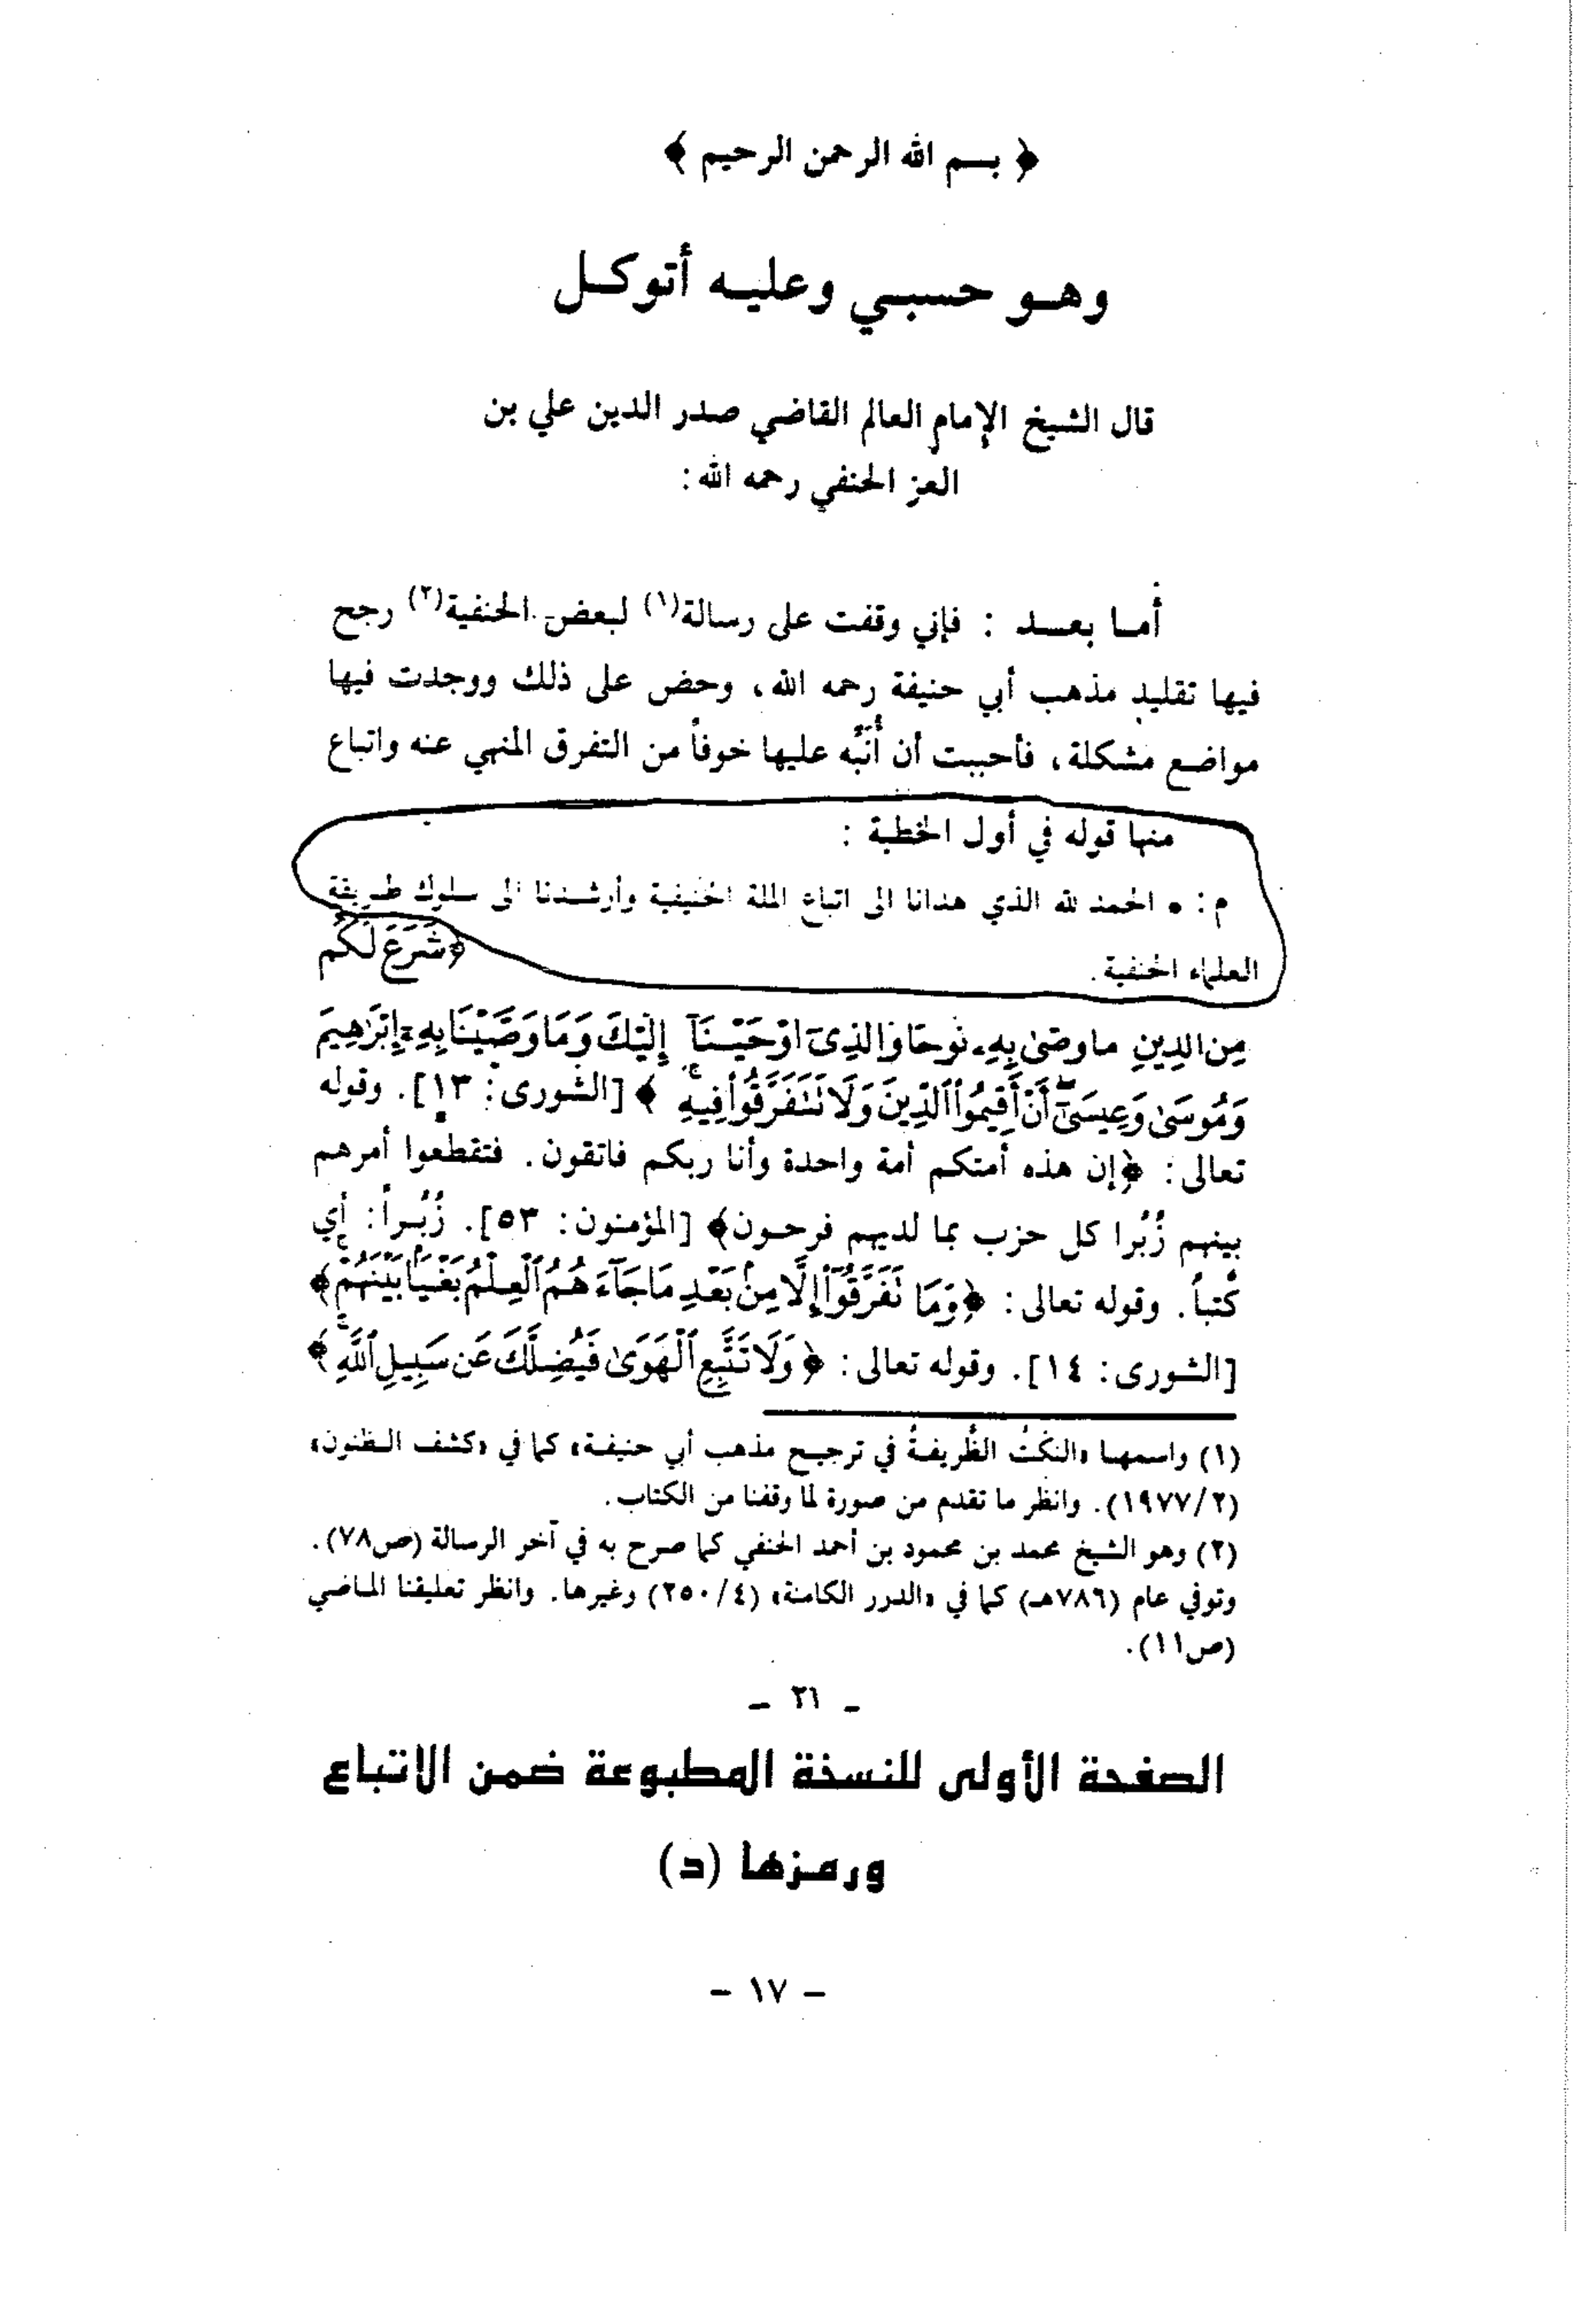 ﴿ بسم الله الرحمن الرحيم ﴾
وهو حسبي وعليه أتوكل
قال الشيخ الإمام العالم القاضي صدر الدين علي بن
العز الحنفي رحمه الله:
أما بعد : فإني وقفت على رسالة(١) لبعض الحنفية(٢) رجح
فيها تقليد مذهب أبي حنيفة رحمه الله، وحض على ذلك ووجدت فيها
مواضع مشكلة، فأحببت أن أُنَبِّه عليها خوفاً من التفرق المنهي عنه واتباع
منها قوله في أول الخطبة :
م: • الحمد لله الذي هدانا الى اتباع الملة الحنيفية وأرشدنا الى سلوك طريقة
العلماء الحنفية.
﴿شَرَعَ لَكُم
مِنَ الدِينِ ما وصَّىٰ بِهِۦ نُوحًا وَالَّذِىٓ أَوْحَيْنَآ إِلَيْكَ وَمَا وَصَّيْنَا بِهِۦٓ إِبْرَٰهِيمَ
وَمُوسَىٰ وَعِيسَىٰٓ أَنْ أَقِيمُوا۟ ٱلدِّينَ وَلَا تَتَفَرَّقُوا۟ فِيهِ ﴾ [الشورى: ١٣]. وقوله
تعالى: ﴿إن هذه أمتكم أمة واحدة وأنا ربكم فاتقون. فتقطعوا أمرهم
بينهم زُبُرا كل حزب بما لديهم فرحون﴾ [المؤمنون: ٥٣]. زُبُراً: أي
كُتباً. وقوله تعالى: ﴿وَمَا تَفَرَّقُوٓا۟ إِلَّا مِنۢ بَعْدِ مَا جَآءَهُمُ ٱلْعِلْمُ بَغْيًۢا بَيْنَهُمْ﴾
[الشورى: ١٤]. وقوله تعالى: ﴿وَلَا تَتَّبِعِ ٱلْهَوَىٰ فَيُضِلَّكَ عَن سَبِيلِ ٱللَّهِ﴾
(١) واسمها «النكتُ الظريفةُ في ترجيح مذهب أبي حنيفة» كما في «كشف الظنون»
(١٩٧٧/٢). وانظر ما تقدم من صورة لما وقفنا من الكتاب.
(٢) وهو الشيخ محمد بن محمود بن أحمد الحنفي كما صرح به في آخر الرسالة (ص٧٨).
وتوفي عام (٧٨٦هـ) كما في «الدرر الكامنة» (٢٥٠/٤) وغيرها. وانظر تعليقنا الماضي
(ص١١).
- ٢١ -
الصفحة الأولى للنسخة المطبوعة ضمن الاتباع
ورمزها (د)
- ١٧ -